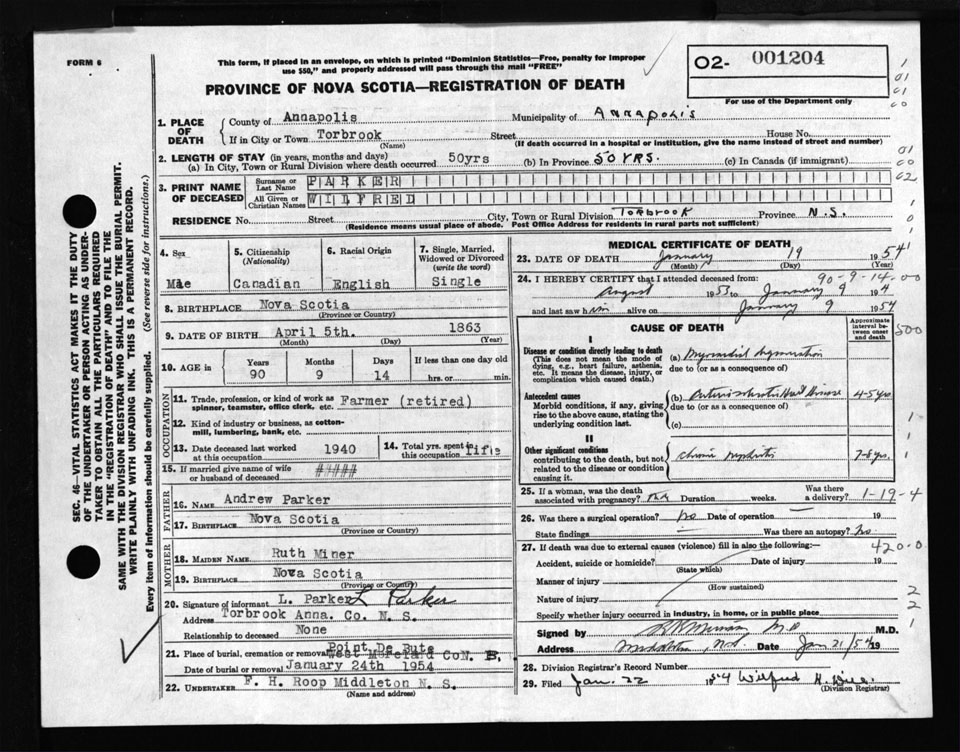 FORM 6
This form, if placed in an envelope, on which is printed "Dominion Statistics—Free, penalty for improper
use $50," and properly addressed will pass through the mail "FREE"
O2- 001204
For use of the Department only
PROVINCE OF NOVA SCOTIA—REGISTRATION OF DEATH
1. PLACE OF DEATH
County of Annapolis Municipality of Annapolis
If in City or Town Torbrook Street House No.
(Name) (If death occurred in a hospital or institution, give the name instead of street and number)
2. LENGTH OF STAY (in years, months and days)
(a) In City, Town or Rural Division where death occurred 50yrs (b) In Province 50 YRS. (c) In Canada (if immigrant)
3. PRINT NAME OF DECEASED
Surname or Last Name PARKER
All Given or Christian Names WILFRED
RESIDENCE No. Street City, Town or Rural Division Torbrook Province N.S.
(Residence means usual place of abode. Post Office Address for residents in rural parts not sufficient)
4. Sex
Mle
5. Citizenship
(Nationality)
Canadian
6. Racial Origin
English
7. Single, Married,
Widowed or Divorced
(write the word)
Single
8. BIRTHPLACE Nova Scotia
(Province or Country)
9. DATE OF BIRTH April 5th. 1863
(Month) (Day) (Year)
10. AGE in Years Months Days If less than one day old
90 9 14 hrs. or min.
OCCUPATION
11. Trade, profession, or kind of work as
spinner, teamster, office clerk, etc. Farmer (retired)
12. Kind of industry or business, as cotton-
mill, lumbering, bank, etc.
13. Date deceased last worked
at this occupation 1940
14. Total yrs. spent in
this occupation life
15. If married give name of wife
or husband of deceased #####
FATHER
16. NAME Andrew Parker
17. BIRTHPLACE Nova Scotia
(Province or Country)
MOTHER
18. MAIDEN NAME Ruth Miner
19. BIRTHPLACE Nova Scotia
(Province or Country)
20. Signature of informant L. Parker L Parker
Address Torbrook Anna. Co. N. S.
Relationship to deceased None
21. Place of burial, cremation or removal Point De Bute
West Moreland Co N. B.
Date of burial or removal January 24th 1954
22. UNDERTAKER F. H. Roop Middleton N. S.
(Name and address)
MEDICAL CERTIFICATE OF DEATH
23. DATE OF DEATH January 19 1954
(Month) (Day) (Year)
24. I HEREBY CERTIFY that I attended deceased from:
90-9-14-00
August 1953 to January 9 1954
and last saw him alive on January 9 1954
CAUSE OF DEATH
Approximate
interval be-
tween onset
and death
500
I
Disease or condition directly leading to death
(This does not mean the mode of
dying, e.g., heart failure, asthenia,
etc. It means the disease, injury, or
complication which caused death.)
(a) Myocardial degeneration
due to (or as a consequence of)
Antecedent causes
Morbid conditions, if any, giving
rise to the above cause, stating the
underlying condition last.
(b) Arteriosclerotic Heart Disease 4-5 yrs.
due to (or as a consequence of)
(c)
II
Other significant conditions
contributing to the death, but not
related to the disease or condition
causing it.
Chronic Nephritis 7-8 yrs.
25. If a woman, was the death
associated with pregnancy? Duration weeks. Was there
a delivery? 1-19-4
26. Was there a surgical operation? No Date of operation 19
State findings Was there an autopsy? No.
27. If death was due to external causes (violence) fill in also the following:— 420-0
Accident, suicide or homicide? Date of injury 19
(State which)
Manner of injury
(How sustained)
Nature of injury
Specify whether injury occurred in industry, in home, or in public place
Signed by M.D. M.D.
Address Middleton, N.S. Date Jan 21/54 19
28. Division Registrar's Record Number
29. Filed Jan. 22 1954 Wilfred H.
(Division Registrar)
SEC. 46—VITAL STATISTICS ACT MAKES IT THE DUTY
OF THE UNDERTAKER OR PERSON ACTING AS UNDER-
TAKER TO OBTAIN ALL THE PARTICULARS REQUIRED
IN THE "REGISTRATION OF DEATH" AND TO FILE THE
SAME WITH THE DIVISION REGISTRAR WHO SHALL ISSUE THE BURIAL PERMIT.
WRITE PLAINLY WITH UNFADING INK. THIS IS A PERMANENT RECORD.
Every item of Information should be carefully supplied. (See reverse side for instructions.)